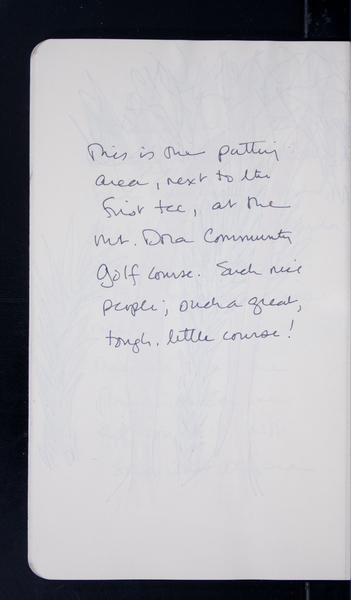 This is the putting
area, next to the
first tee, at the
Mt. Dora Community
Golf course. Such nice
people; such a great,
tough, little course!